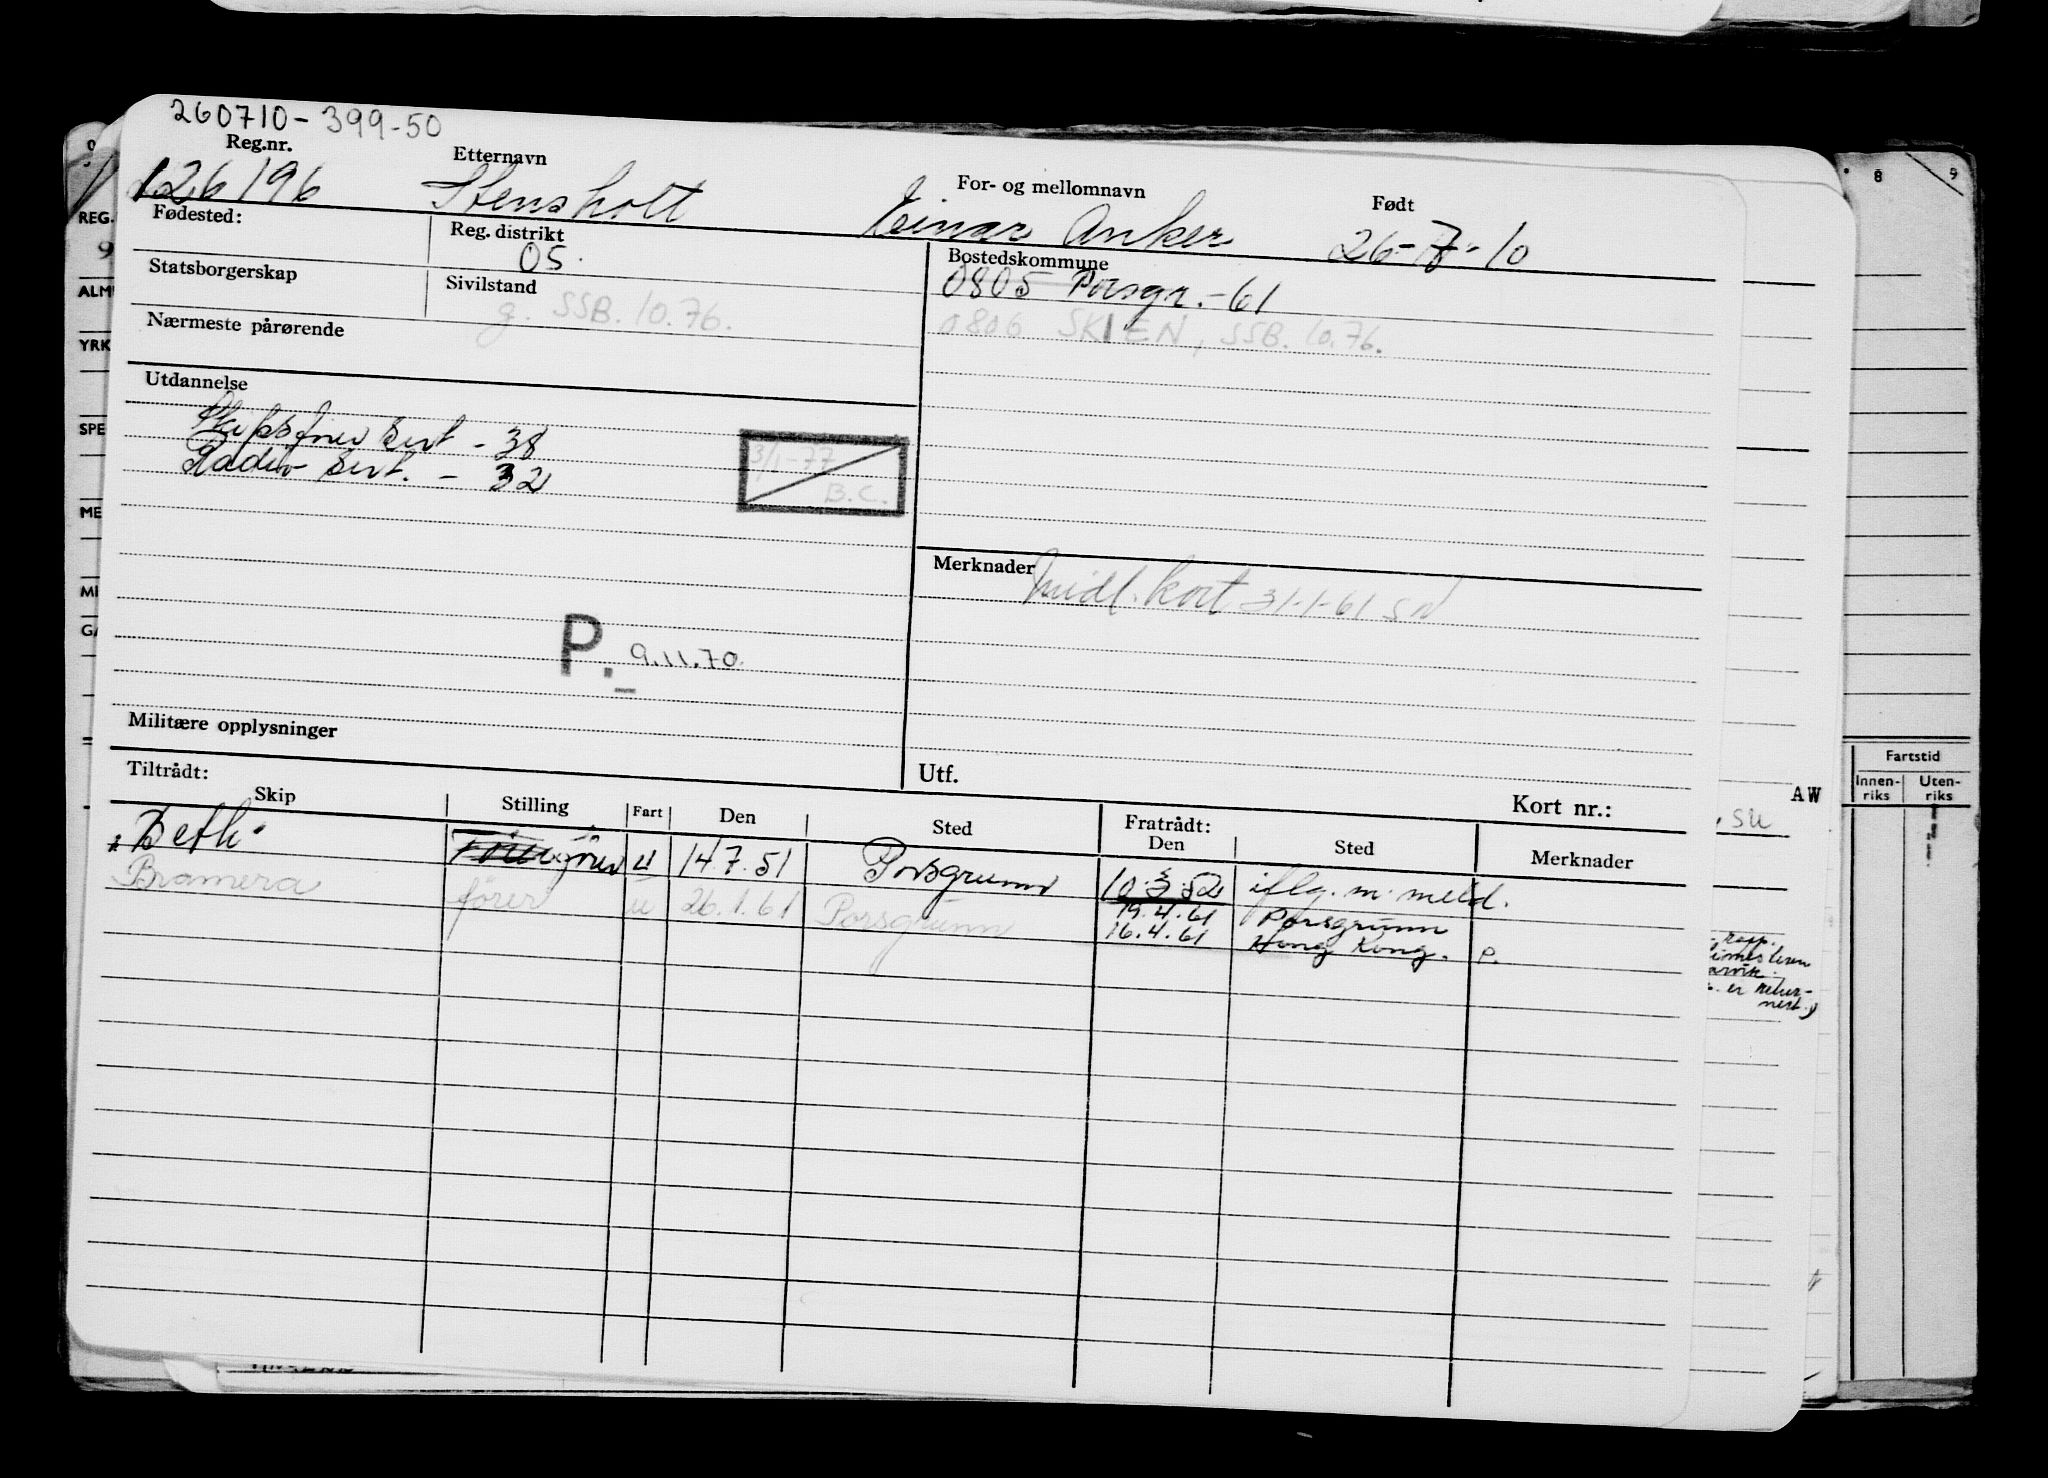 260710-399-50
Reg.nr. Etternavn For- og mellomnavn Født
126196 Stensholt Einar Anker 26-7-10
Fødested: Reg. distrikt Bostedskommune
05. 0805 Porsgr.-61
Statsborgerskap Sivilstand
g. SSB. 10.76. 0806 SKIEN, SSB. 10.76.
Nærmeste pårørende
Utdannelse
Skipsfører sert - 38
Radio sert. - 32
3/1-77
B.C.
Merknader
Midl. kort 31-1-61
P. 9.11.70.
Militære opplysninger
Utf. Kort nr.:
Tiltrådt: Fratrådt:
Skip Stilling Fart Den Sted Den Sted Merknader
Beth u 14.7.51 Porsgrunn 10.3.52 iflg. m. meld.
Bramera fører u 26.1.61 Porsgrunn 19.4.61 Porsgrunn
16.4.61 Hong Kong. P.
REG.
9
ALM
YRK
SPE
ME
MI
GA
8 9
Fartstid
Innen-
riks
Uten-
riks
AW
su
er retur-
nert.)